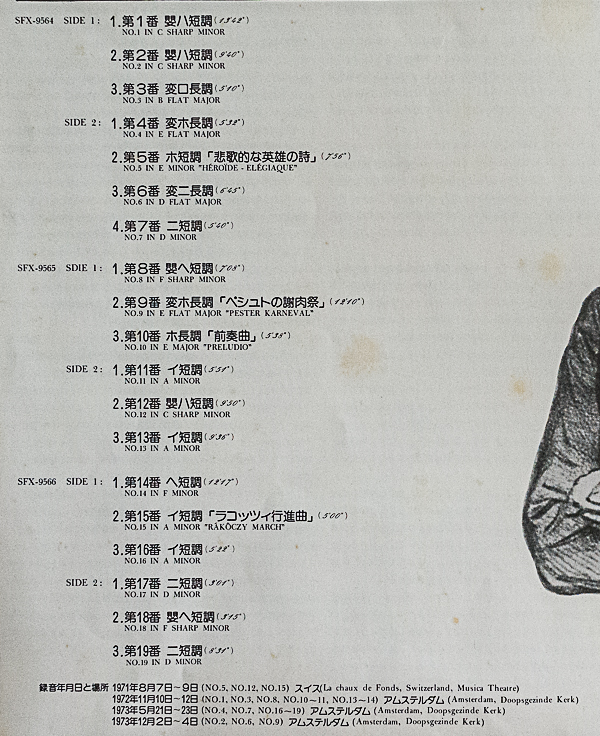 SFX-9564 SIDE 1: 1.第1番 嬰ハ短調(13'42")
NO.1 IN C SHARP MINOR
2.第2番 嬰ハ短調(9'40")
NO.2 IN C SHARP MINOR
3.第3番 変ロ長調(5'10")
NO.3 IN B FLAT MAJOR
SIDE 2: 1.第4番 変ホ長調(5'32")
NO.4 IN E FLAT MAJOR
2.第5番 ホ短調「悲歌的な英雄の詩」(7'56")
NO.5 IN E MINOR "HÉROÏDE-ELÉGIAQUE"
3.第6番 変ニ長調(6'45")
NO.6 IN D FLAT MAJOR
4.第7番 ニ短調(5'40")
NO.7 IN D MINOR
SFX-9565 SDIE 1: 1.第8番 嬰ヘ短調(7'08")
NO.8 IN F SHARP MINOR
2.第9番 変ホ長調「ペシュトの謝肉祭」(12'10")
NO.9 IN E FLAT MAJOR "PESTER KARNEVAL"
3.第10番 ホ長調「前奏曲」(5'38")
NO.10 IN E MAJOR "PRELUDIO"
SIDE 2: 1.第11番 イ短調(5'51")
NO.11 IN A MINOR
2.第12番 嬰ハ短調(9'50")
NO.12 IN C SHARP MINOR
3.第13番 イ短調(9'36")
NO.13 IN A MINOR
SFX-9566 SIDE 1: 1.第14番 ヘ短調(12'17")
NO.14 IN F MINOR
2.第15番 イ短調「ラコッツィ行進曲」(5'00")
NO.15 IN A MINOR "RÁKÓCZY MARCH"
3.第16番 イ短調(5'22")
NO.16 IN A MINOR
SIDE 2: 1.第17番 ニ短調(3'01")
NO.17 IN D MINOR
2.第18番 嬰ヘ短調(3'15")
NO.18 IN F SHARP MINOR
3.第19番 ニ短調(9'31")
NO.19 IN D MINOR
録音年月日と場所 1971年8月7日~9日(NO.5, NO.12, NO.15) スイス(La chaux de Fonds, Switzerland, Musica Theatre)
1972年11月10日~12日(NO.1, NO.3, NO.8, NO.10~11, NO.13~14) アムステルダム (Amsterdam, Doopsgezinde Kerk)
1973年5月21日~23日(NO.4, NO.7, NO.16~19) アムステルダム (Amsterdam, Doopsgezinde Kerk)
1973年12月2日~4日 (NO.2, NO.6, NO.9) アムステルダム (Amsterdam, Doopsgezinde Kerk)